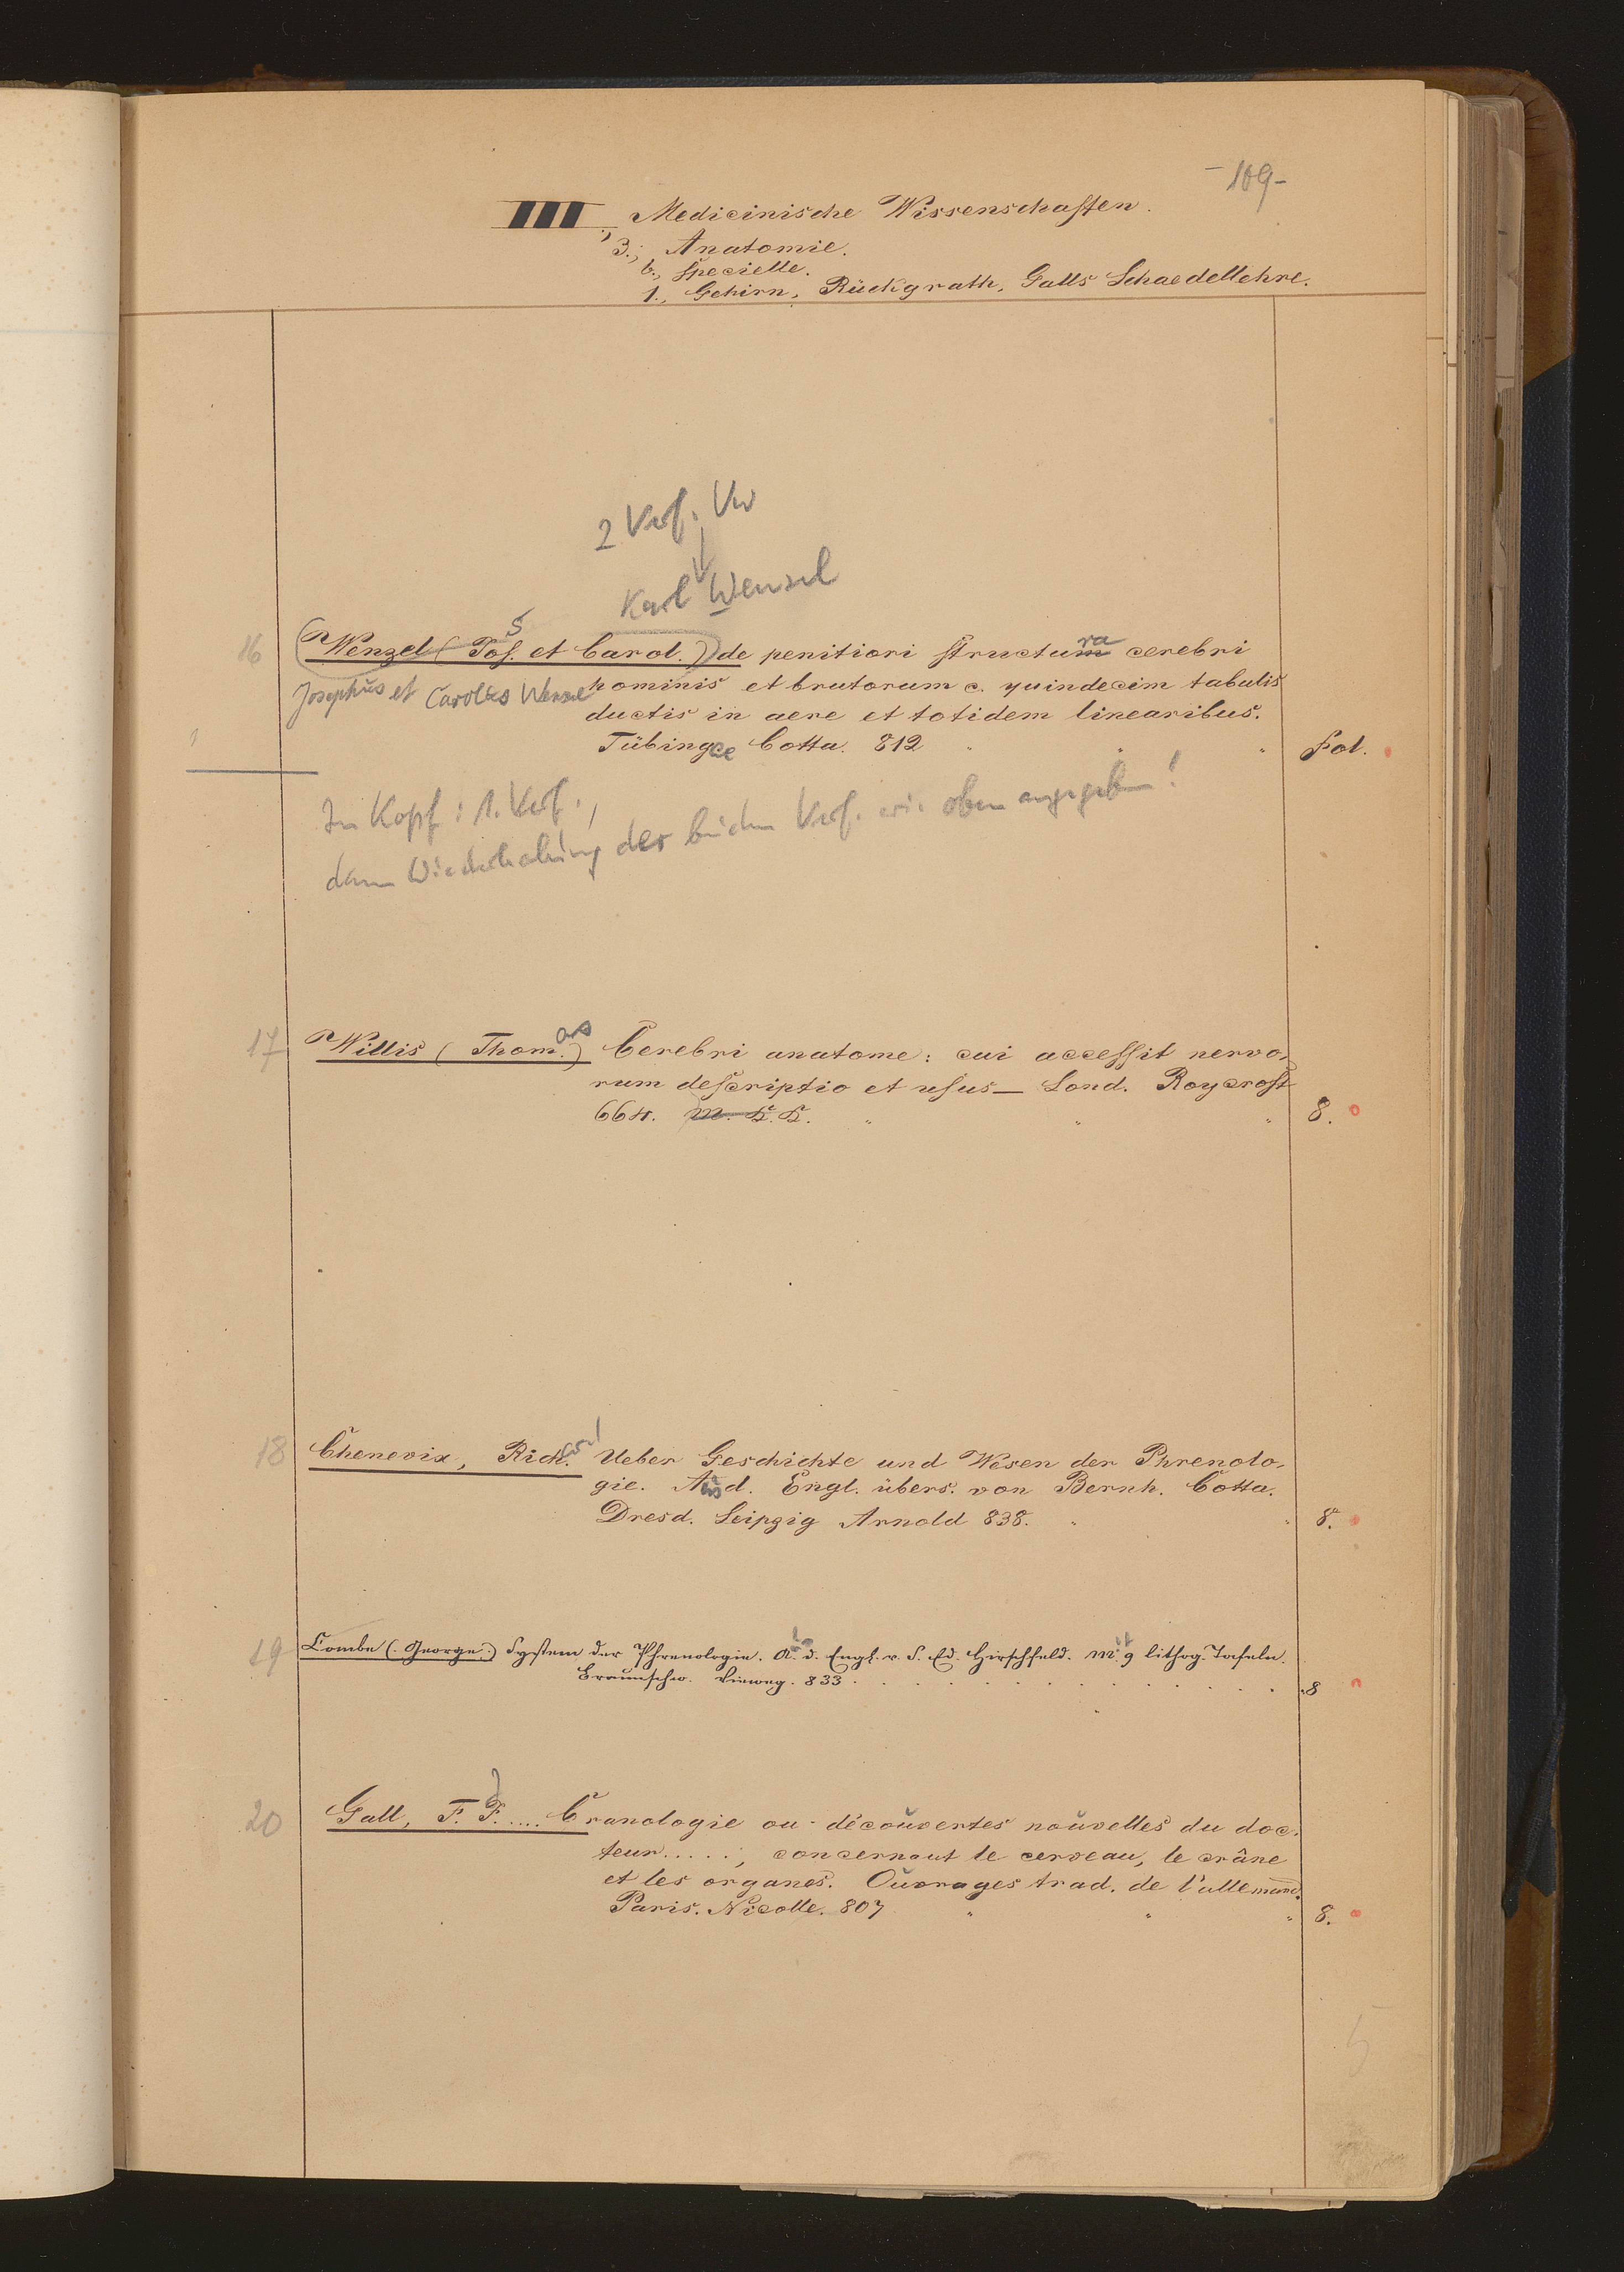 - 109 -
III., Medicinische Wissenschaften.
3., Anatomie.
b., specielle.
1., Gehirn, Rückgrath, Galls Schaedellehre.
2 Verf. Vw
Karl Wenzel
16 Wenzel (Jos. et Carol.) de penitiori structura cerebri
Josephus et Carolus Wenzel hominis et brutorum c. quindecim tabulis
ductis in aere et totidem linearibus.
Tübingae Cotta. 812 " " " Fol.
Im Kopf: 1. Verf.,
dann Wiederholung der beiden Verf. wie oben angegeben!
17 Willis (Thomas) Cerebri anatome: cui accessit nervo-
rum descriptio et usus— Lond. Roycroft
664. m. K. K. " " " 8.
18 Chenevix, Richard Ueber Geschichte und Wesen der Phrenolo-
gie. Aus d. Engl. übers. von Bernh. Cotta.
Dresd. Leipzig Arnold 838. " " 8.
19 Combe (George) System der Phrenologie. A. d. Engl. v. S. Ed. Hirschfeld. Mit 9 lithog. Tafeln.
Braunschw. Vieweg. 833 . . . . . . . . . . . 8
20 Gall, F. J. ..... Cranologie ou découvertes nouvelles du doc-
teur ....., concernant le cerveau, le crâne
et les organes. Ouvrages trad. de l'allemand.
Paris. Nicolle. 807 " " " 8.
5